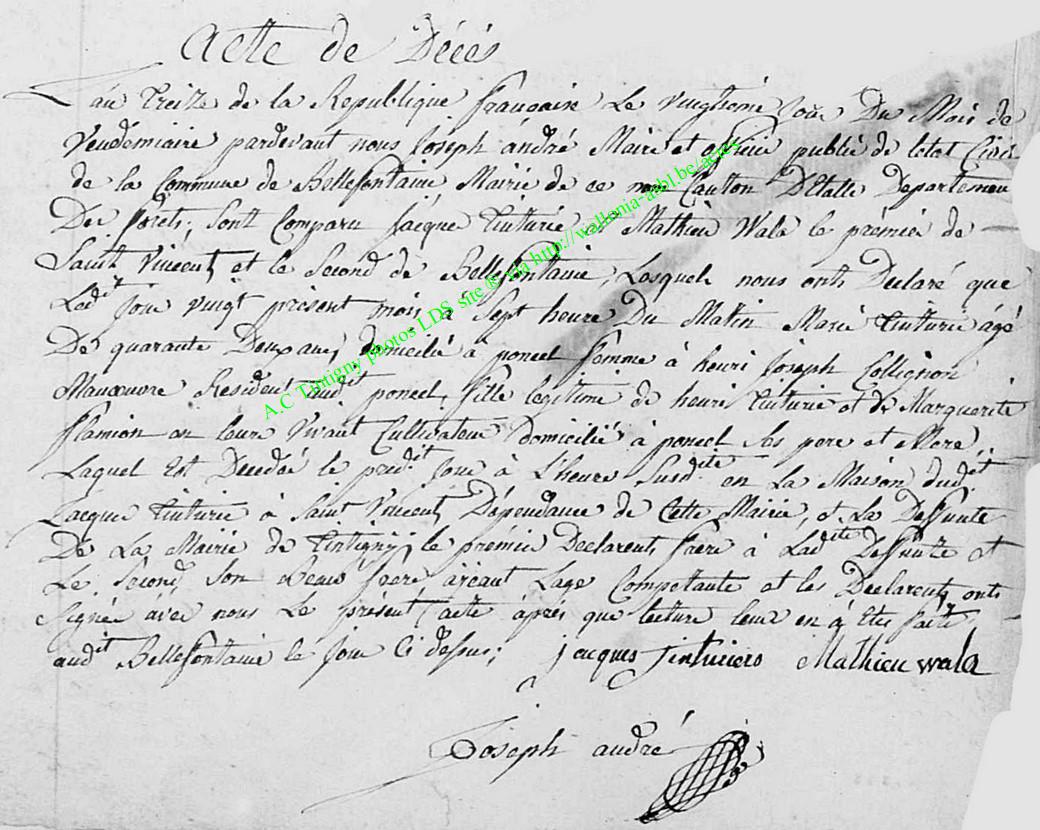 Acte de Décés
L'an Treize de la Republique française Le vingtiéme Jour Du Mois de
Vendémiaire pardevant nous Joseph andré Maire et officier public de letat Civil
de la Commune de Bellefontaine Mairie de ce nom Canton D'Etalle Departement
Des forets, sont Comparu Jàcque Tinturié et Mathieu Wala le prémiér de
Saint Vincent et le Second de Bellefontaine, Lesquels nous onts Declare que
Ledit Jour vingt présent mois à Sept heure Du Matin Marié Tinturié ágé
De quarante Deux ans, domicilié a poncel femme à henri Joseph Collignon
Manœuvre Resident audit poncel, fille legitime de henri Tinturié et de Marguerite
flamion en leure Vivant Cultivateur Domicilié à poncel Ses pere et Mere
Laquel Est Decedée le predit Jour à L'heure Susdite en La Maison dudit
Jacque Tinturié à Saint Vincent Dépendance de Cette Mairie, et La Defunte
De La Mairie de Tintigny; le premier Declarent frere à Ladite Defunte et
Le Second Son Beau frere aÿeant Lage Competante et les Declarents onts
Signée avec nous Le présent acte áprés que lecture leur en á Eté faite
audit Bellefontaine le Jour Ci dessus; jacques tinturiers Mathieu wala
Joseph andré
A.C Tintigny photos LDS site ® via http://wallonia-asbl.be/actes